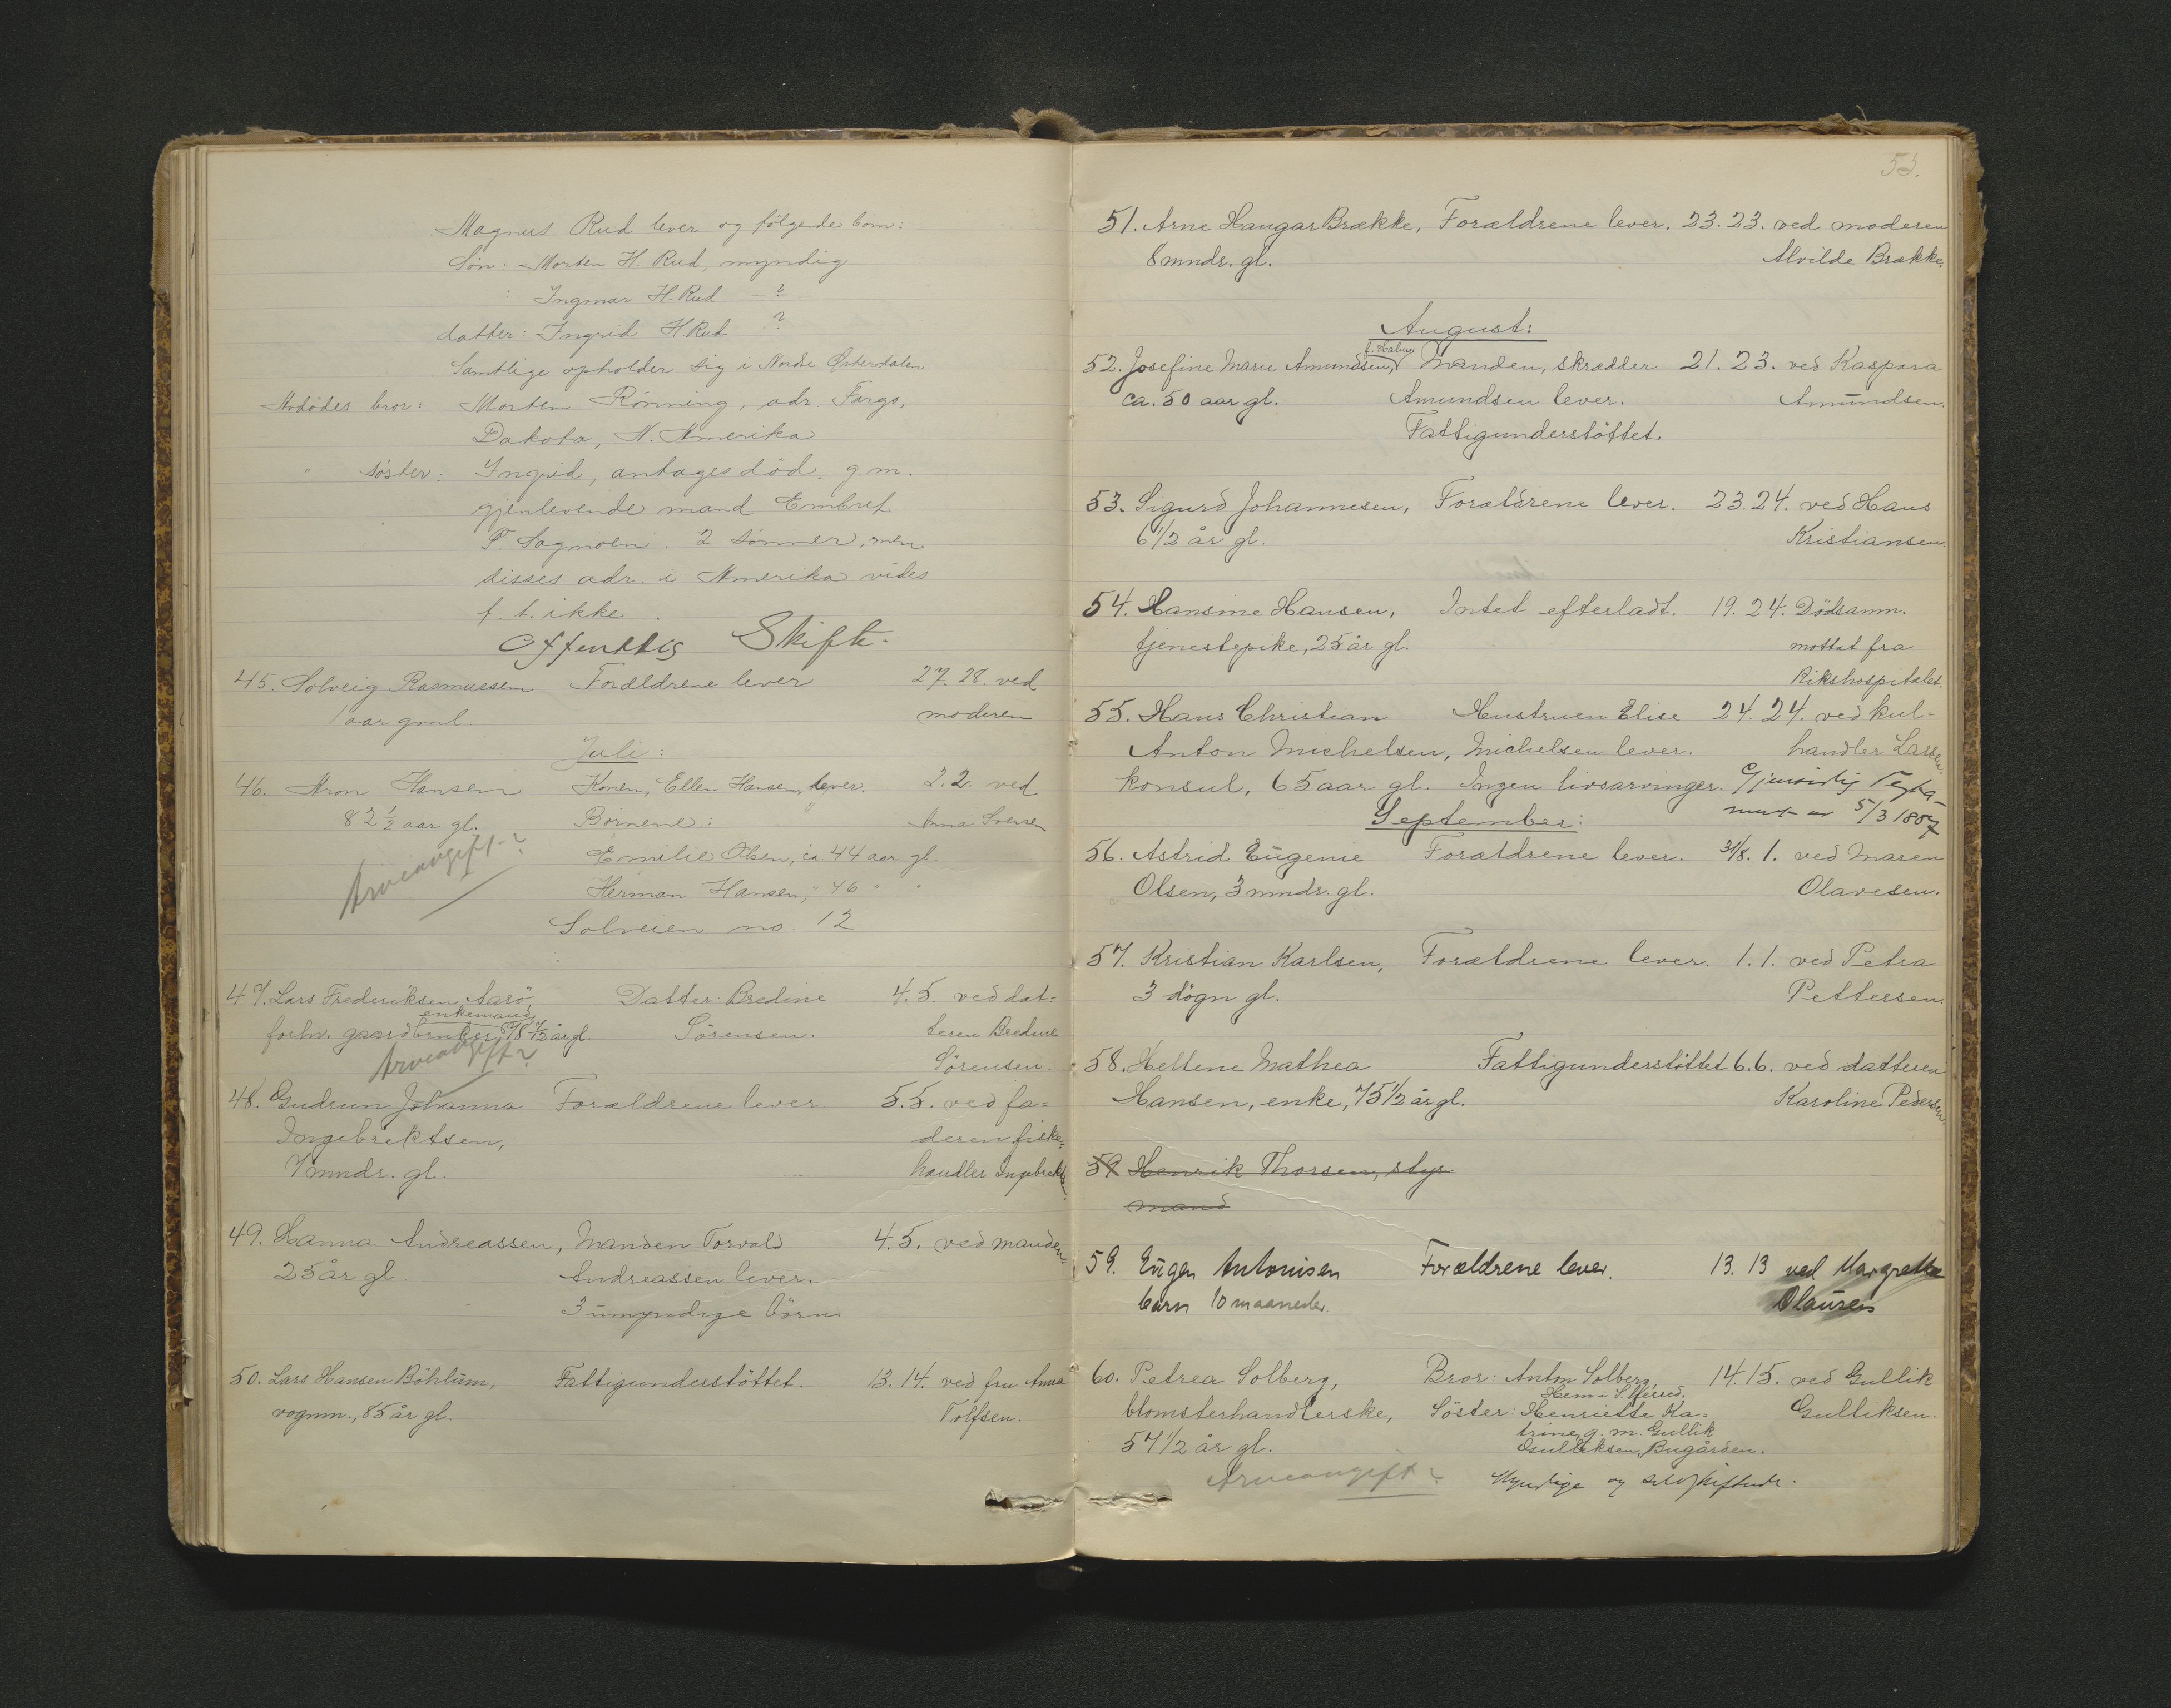 Magnus Rud lever og følgende børn:
Søn: Morten H. Rud, myndig
" Ingmar H. Rud - ? -
datter: Ingrid H Rud ?
Samtlige opholder sig i Nordre Østerdalen
Avdødes bror: Morten Rönning, adr. Fargo,
Dakota, N. Amerika
" søster: Ingrid, antages död. g.m.
gjenlevende mand Embret
P. Sagmoen. 2 sönner, men
disses adr. i Amerika vides
f. t. ikke.
Offentlig Skifte.
45. Solveig Rasmussen Forældrene lever 27. 28. ved
1 aar gml. moderen
Juli:
46. Aron Hansen Konen, Ellen Hansen, lever. 2. 2. ved
82 1/2 aar gl. Börnene: Anna Svensen
Arveavgift? Emilie Olsen, ca. 44 aar gl.
Herman Hansen, " 46 " "
Solveien no. 12
47. Lars Frederiksen Aarö, Datter: Bredine 4. 5. ved dat=
enkemand
forhv. gaardbruker, 78 1/2 år gl. Sörensen. teren Bredine
Arveavgift? Sörensen.
48. Gudrun Johanna Forældrene lever 5. 5. ved fa=
Ingebrektsen, deren fiske=
7 mndr. gl. handler Ingebrektsen.
49. Hanna Andreassen, Manden Torvald 4. 5. ved manden.
25 år gl Andreassen lever.
3 umyndige börn
50. Lars Hansen Böhlum, Fattigunderstöttet. 13. 14. ved fru Anna
vognm., 85 år gl. Tolfsen.
53.
51. Arne Haugar Brække, Forældrene lever. 23. 23. ved moderen
8 mndr. gl. Alvilde Brække.
August:
52. Josefine Marie Amundsen, Manden, skrædder 21. 23. ved Kaspara
ca. 50 aar gl. Amundsen lever. Amundsen.
Fattigunderstöttet.
53. Sigurd Johannesen, Forældrene lever. 23. 24. ved Hans
6 1/2 år gl. Kristiansen.
54. Hansine Hansen, Intet efterladt. 19. 24. Dödsanm.
tjenestepike, 25 år gl. mottat fra
Rikshospitalet.
55. Hans Christian Hustruen Elise 24. 24. ved kul=
Anton Michelsen, Michelsen lever. handler Larsen.
konsul, 65 aar gl. Ingen livsarvinger. Gjensidig Testa-
ment av 5/3 1887
September:
56. Astrid Eugenie Forældrene lever. 31/8. 1. ved Maren
Olsen, 3 mndr. gl. Olavesen.
57. Kristian Karlsen, Forældrene lever. 1. 1. ved Petra
3 dögn gl. Pettersen.
58. Hellene Mathea Fattigunderstöttet 6. 6. ved datteren
Hansen, enke, 75 1/2 år gl. Karoline Pedersen
59 Henrik Thorsen, styr
mand
59. Eugen Antonisen Forældrene lever. 13. 13 ved Margrethe
barn 10 maaneder. Olausen
60. Petrea Solberg, Bror: Anton Solberg, 14. 15. ved Gullik
Hem i
blomsterhandlerske, Söster: Henriette Ka= Gulliksen.
trine, g. m. Gullik
57 1/2 år gl. Gulliksen, Bugården.
Arveavgift? Myndige og selvskiftende.